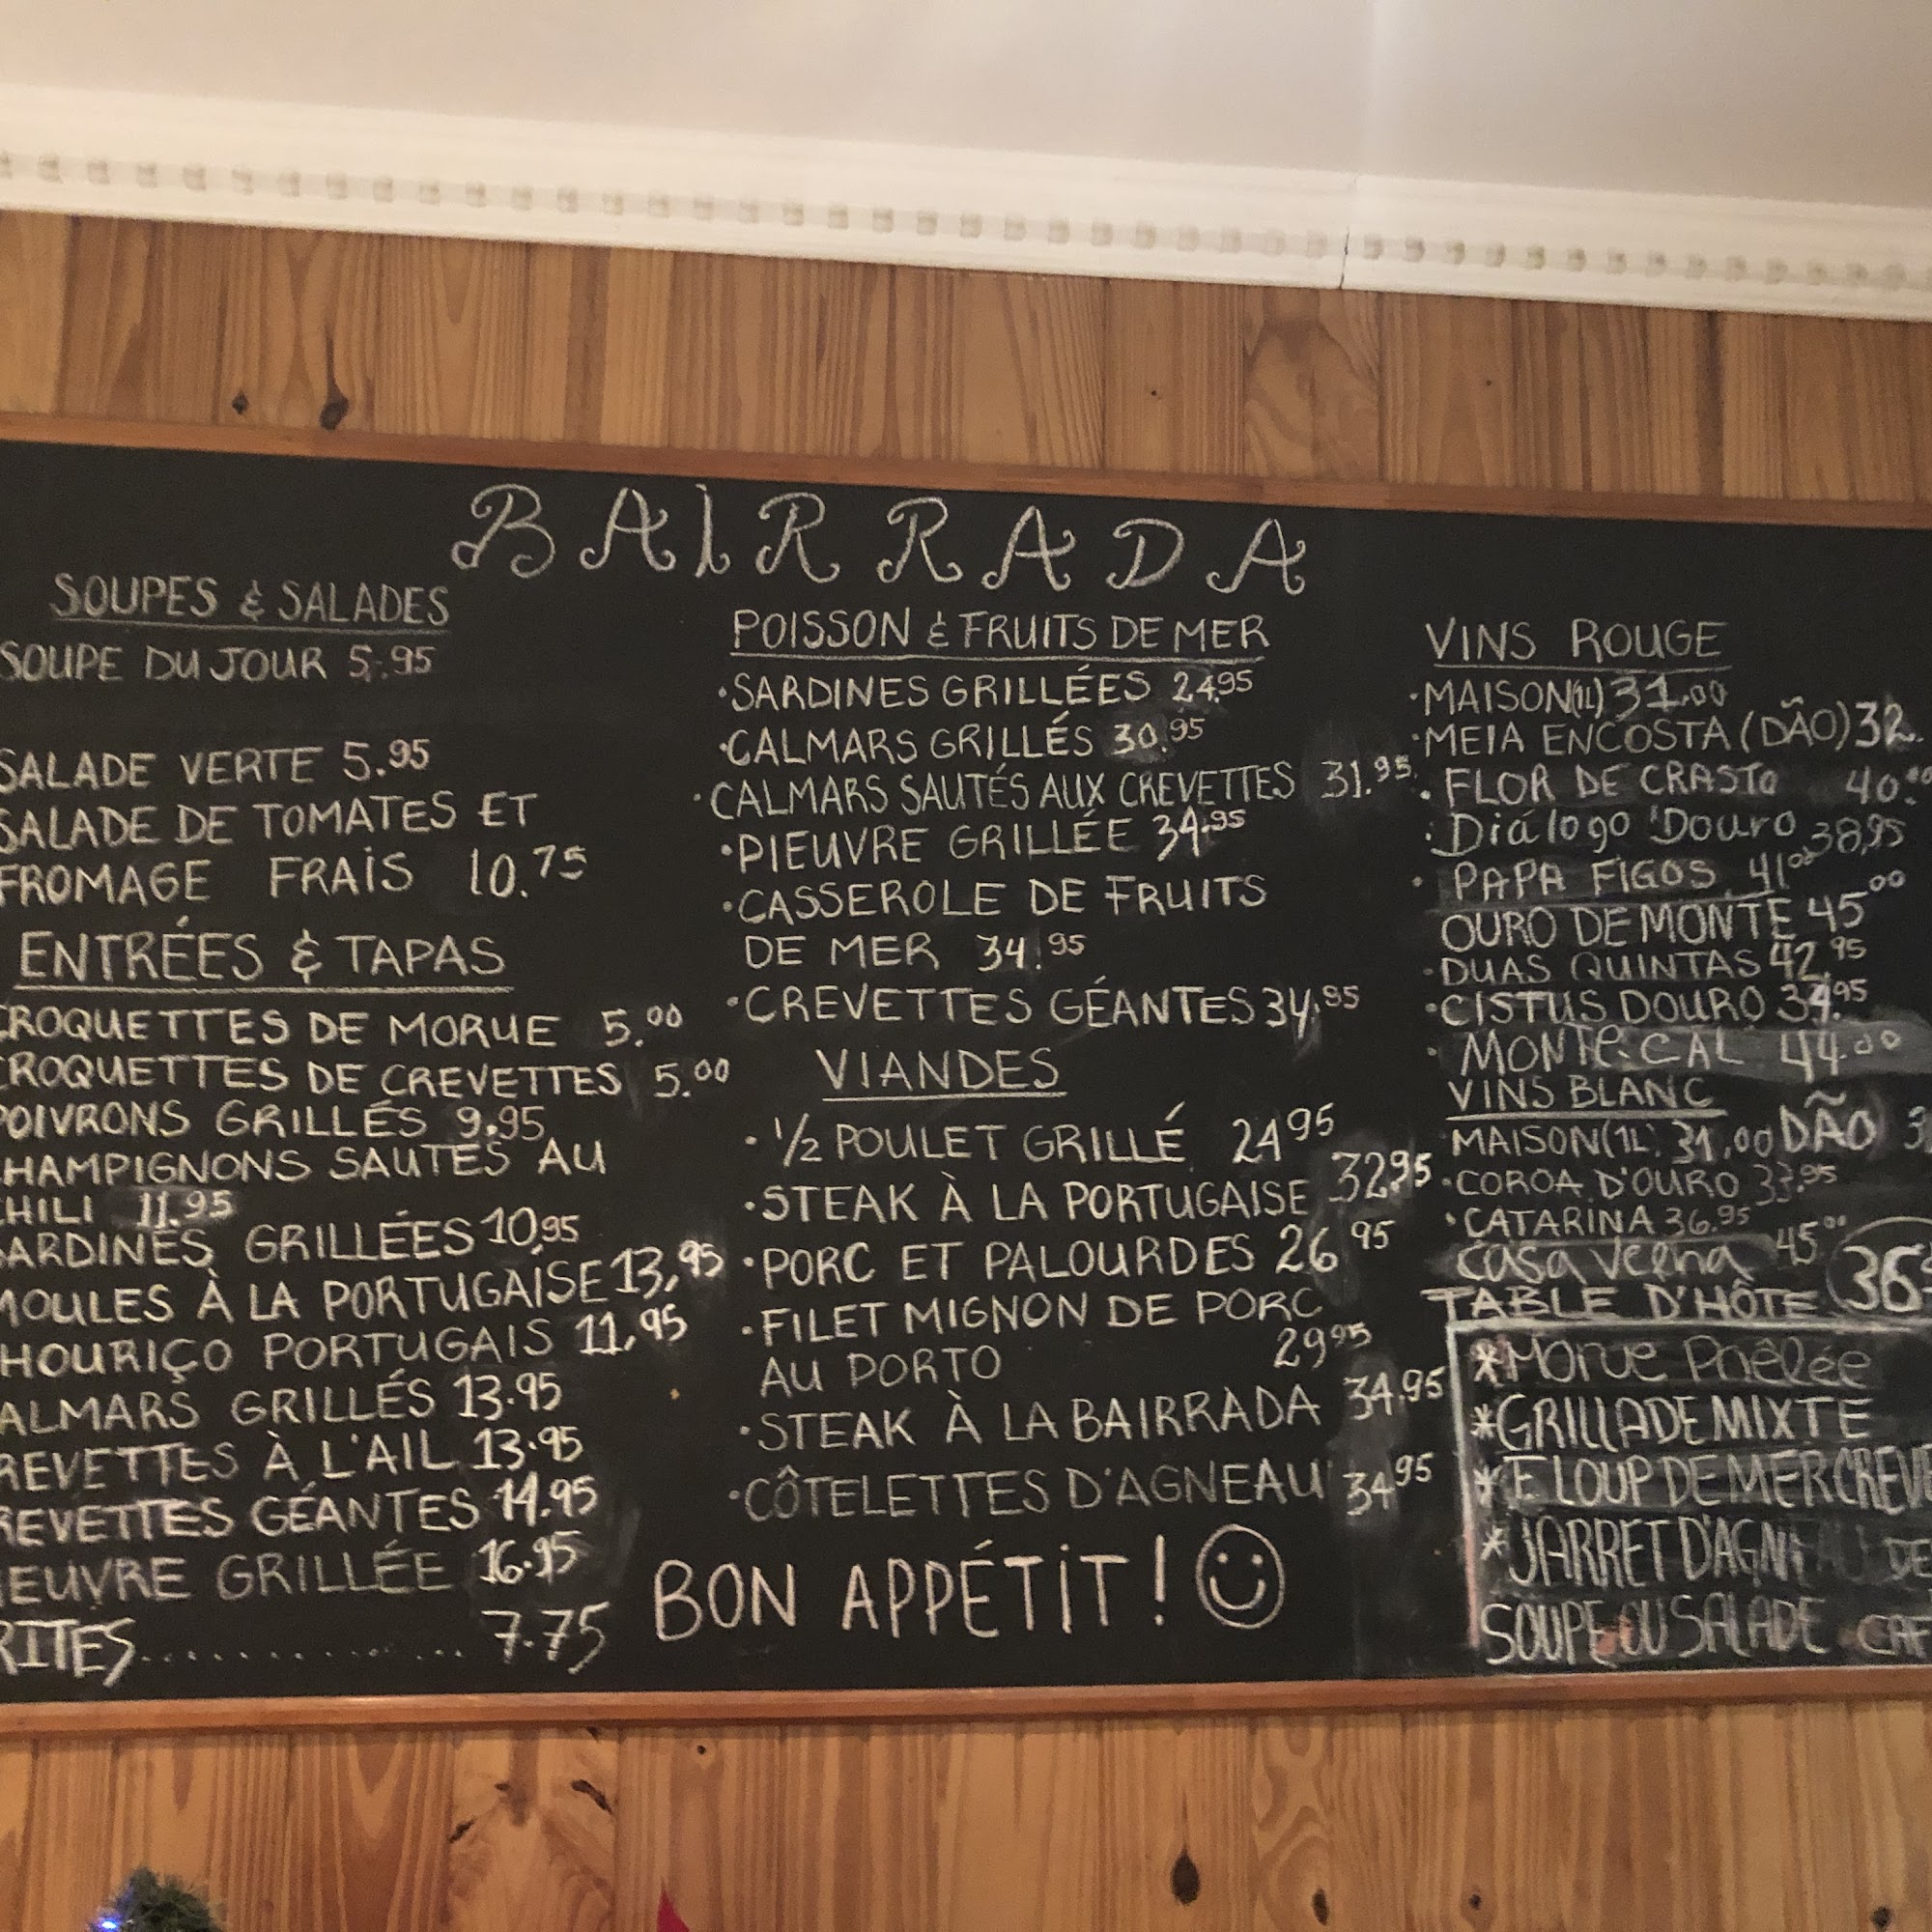 BAIRRADA
SOUPES & SALADES
SOUPE DU JOUR 5.95
SALADE VERTE 5.95
SALADE DE TOMATES ET
FROMAGE FRAIS 10.75
ENTRÉES & TAPAS
CROQUETTES DE MORUE 5.00
CROQUETTES DE CREVETTES 5.00
POIVRONS GRILLÉS 9.95
HAMPIGNONS SAUTÉS AU
HILI 11.95
ARDINES GRILLÉES 10.95
MOULES À LA PORTUGAISE 13,95
HOURIÇO PORTUGAIS 11,95
ALMARS GRILLÉS 13.95
REVETTES À L'AIL 13.95
REVETTES GÉANTES 14.95
IEUVRE GRILLÉE 16.95
RITES.................. 7.75
POISSON & FRUITS DE MER
·SARDINES GRILLÉES 24.95
·CALMARS GRILLÉS 30.95
·CALMARS SAUTÉS AUX CREVETTES 31.95
·PIEUVRE GRILLÉE 34.95
·CASSEROLE DE FRUITS
DE MER 34.95
·CREVETTES GÉANTES 34.95
VIANDES
·1/2 POULET GRILLÉ 24 95
·STEAK À LA PORTUGAISE 32.95
·PORC ET PALOURDES 26 95
·FILET MIGNON DE PORC
AU PORTO 29 95
·STEAK À LA BAIRRADA 34.95
·CÔTELETTES D'AGNEAU 34 95
BON APPÉTIT!
VINS ROUGE
·MAISON(1L) 31.00
·MEIA ENCOSTA (DÃO) 32.
·FLOR DE CRASTO 40.
·Diálogo Douro 38,95
·PAPA FIGOS 41 00
OURO DE MONTE 45 00
·DUAS QUINTAS 42.95
·CISTUS DOURO 34.95
·MONTE CAL 44.00
VINS BLANC
·MAISON(1L) 31.00 DÃO
·COROA D'OURO 33.95
·CATARINA 36.95
Casa Velha 45 00
TABLE D'HÔTE 36
*Morue Poêlée
*GRILLADE MIXTE
* LOUP DE MER
*JARRET
SOUPE OU SALADE